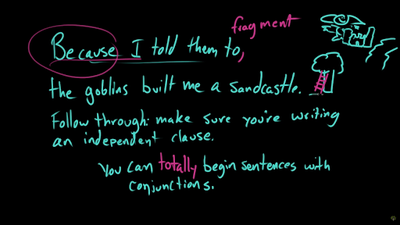 fragment
Because I told them to,
the goblins built me a sandcastle.
Follow through: make sure you're writing
an independent clause.
You can totally begin sentences with
conjunctions.